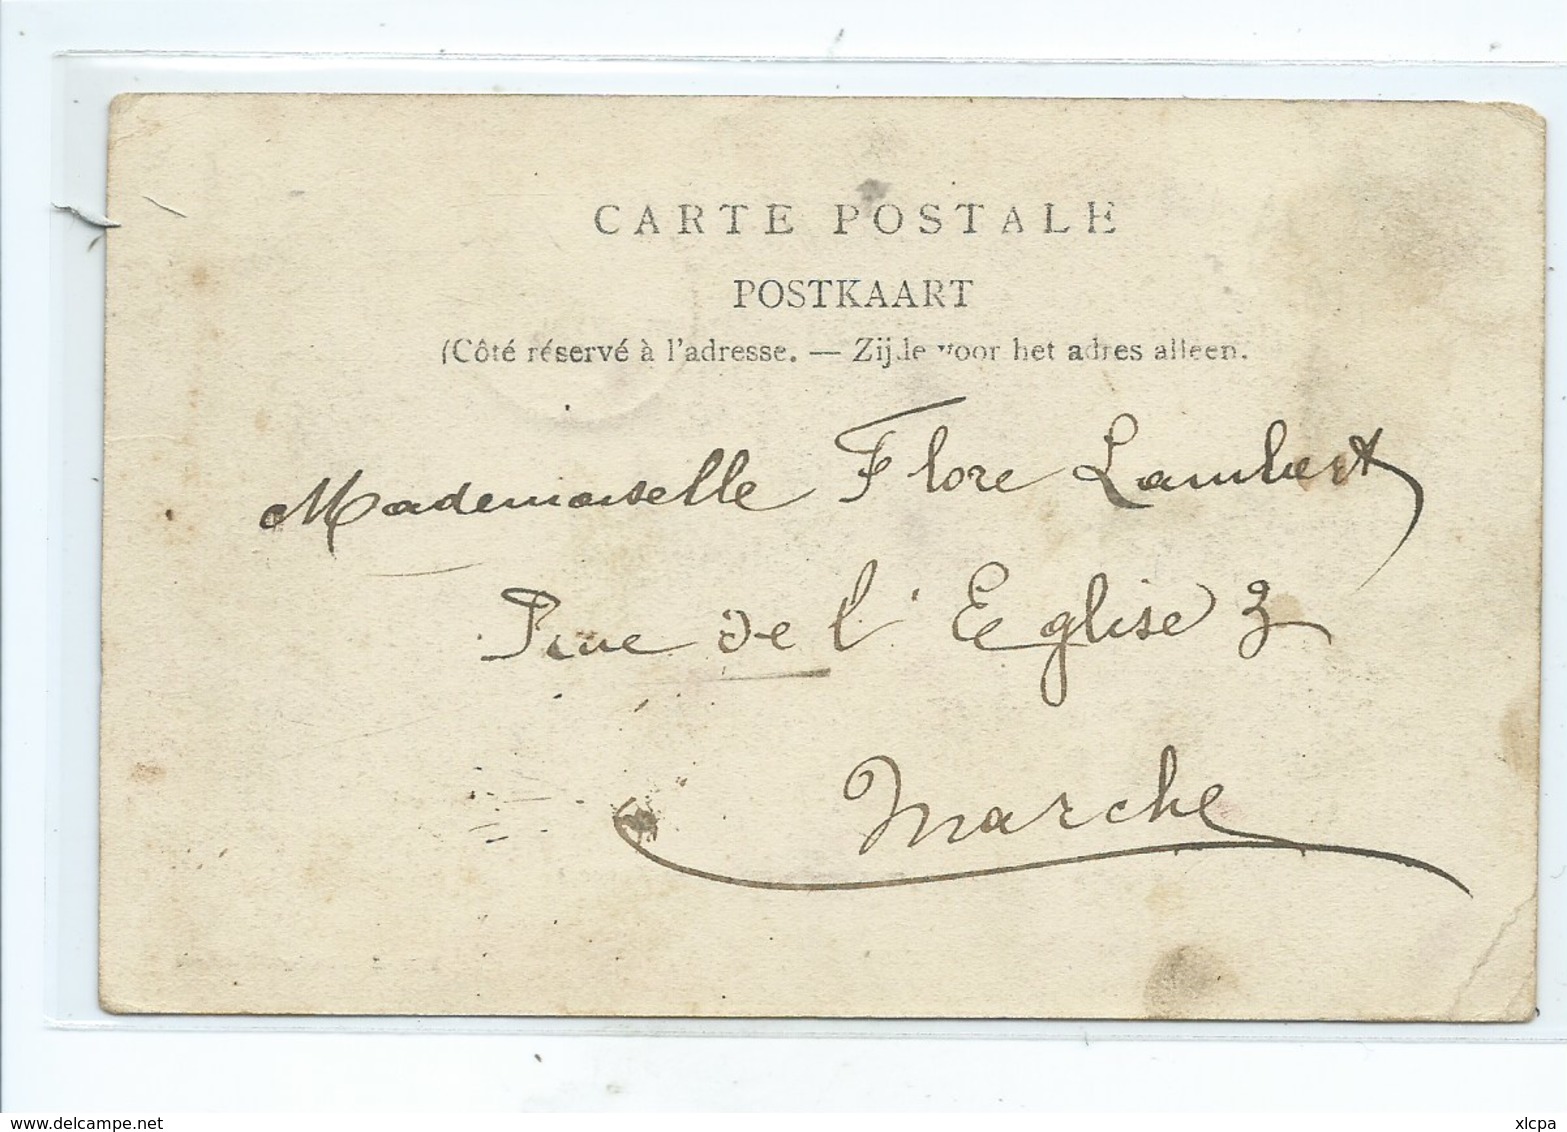 CARTE POSTALE
POSTKAART
(Côté réservé à l'adresse. — Zijde voor het adres alleen.
Mademoiselle Flore Lambert
Rue de l'Eglise 3
Marche
www.delcampe.net
xlcpa